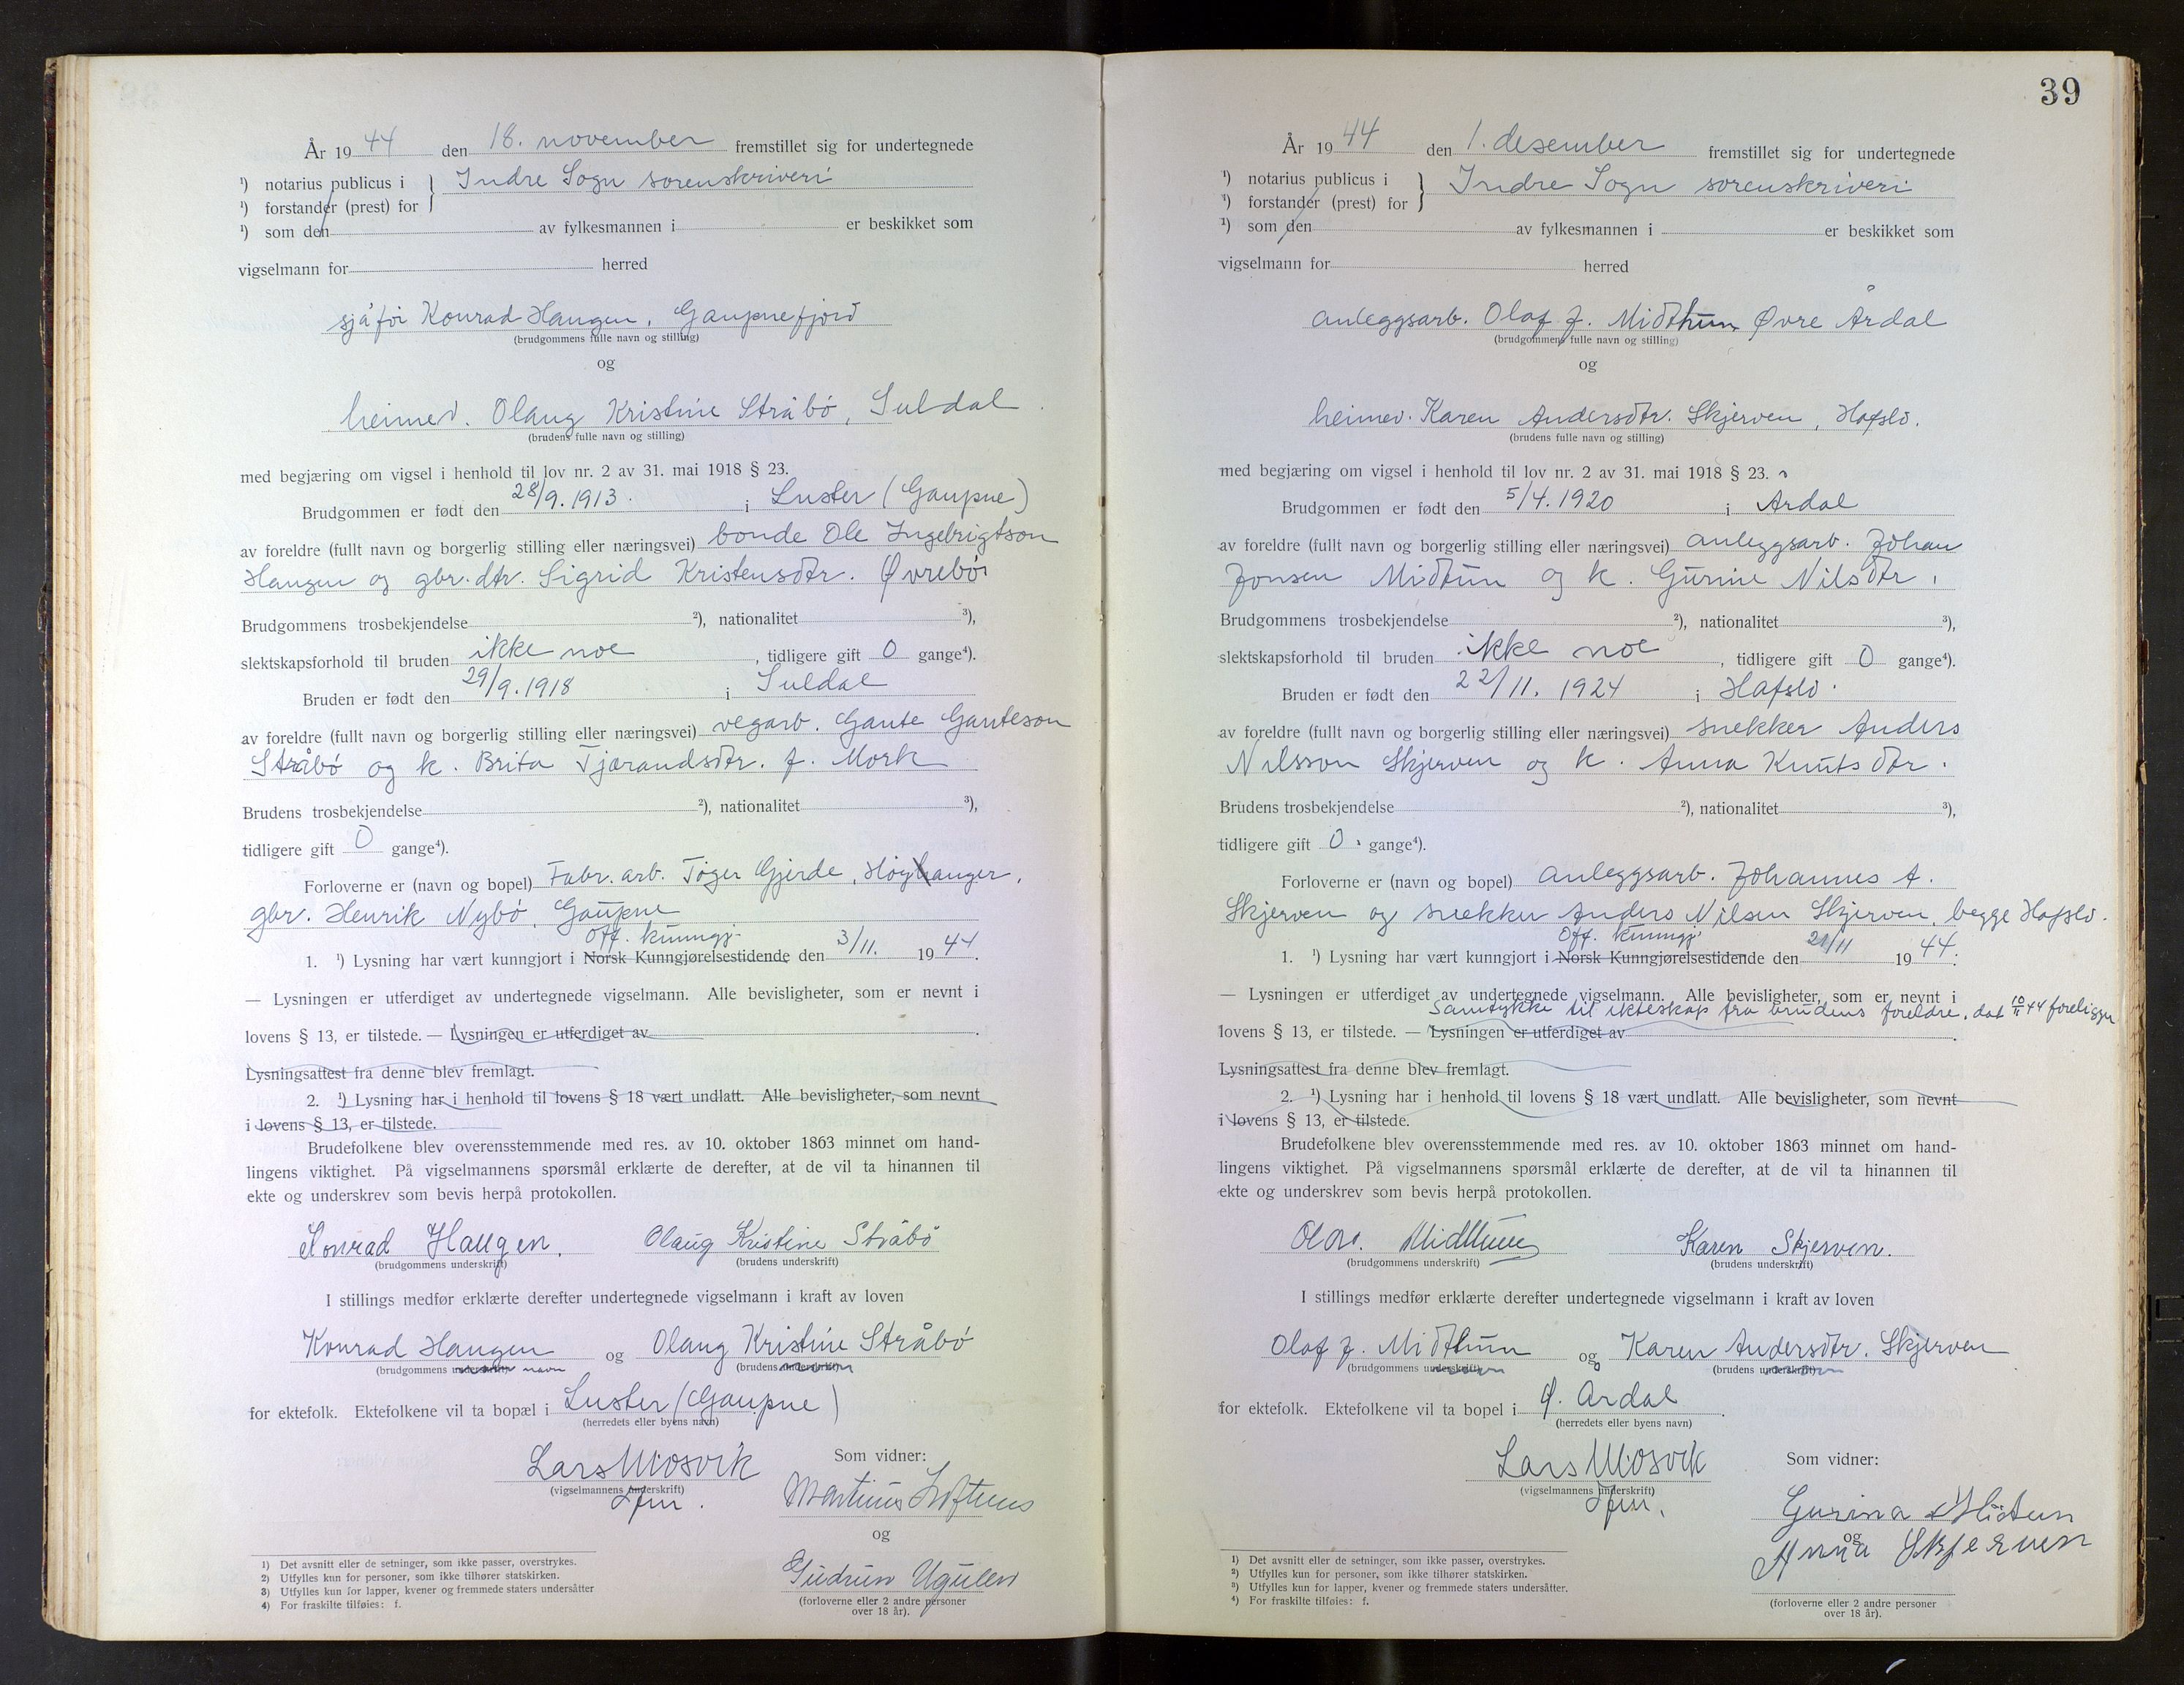 År 19 44 den 18. november fremstillet sig for undertegnede
¹) notarius publicus i } Indre Sogn sorenskriveri
¹) forstander (prest) for
¹) som den av fylkesmannen i er beskikket som
vigselmann for herred
sjåfør Konrad Haugen, Gaupnefjord
(brudgommens fulle navn og stilling)
og
heimev. Olaug Kristine Stråbø, Suldal
(brudens fulle navn og stilling)
med begjæring om vigsel i henhold til lov nr. 2 av 31. mai 1918 § 23.
Brudgommen er født den 28/9. 1913. i Luster (Gaupne)
av foreldre (fullt navn og borgerlig stilling eller næringsvei) bonde Ole Ingebrigtson
Haugen og gbr. dtr. Sigrid Kristensdtr. Øvrebø
Brudgommens trosbekjendelse ²), nationalitet ³),
slektskapsforhold til bruden ikke noe, tidligere gift 0 gange⁴).
Bruden er født den 29/9. 1918 i Suldal
av foreldre (fullt navn og borgerlig stilling eller næringsvei) vegarb. Gaute Gauteson
Stråbø og k. Brita Tjærandsdtr. f. Mork
Brudens trosbekjendelse ²), nationalitet ³),
tidligere gift 0 gange⁴).
Forloverne er (navn og bopel) Fabr. arb. Tøger Gjerde, Høyanger,
gbr. Henrik Nybø, Gaupne
Off. kunngj.
1. ¹) Lysning har vært kunngjort i Norsk Kunngjørelsestidende den 3/11. 19 44.
— Lysningen er utferdiget av undertegnede vigselmann. Alle bevisligheter, som er nevnt i
lovens § 13, er tilstede. — Lysningen er utferdiget av
Lysningsattest fra denne blev fremlagt.
2. ¹) Lysning har i henhold til lovens § 18 vært undlatt. Alle bevisligheter, som nevnt
i lovens § 13, er tilstede.
Brudefolkene blev overensstemmende med res. av 10. oktober 1863 minnet om hand-
lingens viktighet. På vigselmannens spørsmål erklærte de derefter, at de vil ta hinannen til
ekte og underskrev som bevis herpå protokollen.
Konrad Haugen. Olaug Kristine Stråbø
(brudgommens underskrift) (brudens underskrift)
I stillings medfør erklærte derefter undertegnede vigselmann i kraft av loven
Konrad Haugen og Olaug Kristine Stråbø
(brudgommens underskrift navn (brudens underskrift)
for ektefolk. Ektefolkene vil ta bopæl i Luster (Gaupne)
(herredets eller byens navn)
Lars Mosvik Som vidner:
(vigselmannens underskrift)
Martinus Loftnes
og
Gudrun Ugulen
(forloverne eller 2 andre personer
over 18 år).
1) Det avsnitt eller de setninger, som ikke passer, overstrykes.
2) Utfylles kun for personer, som ikke tilhører statskirken.
3) Utfylles kun for lapper, kvener og fremmede staters undersåtter
4) For fraskilte tilføies: f.
39
År 19 44 den 1. desember fremstillet sig for undertegnede
¹) notarius publicus i } Indre Sogn sorenskriveri
¹) forstander (prest) for
¹) som den av fylkesmannen i er beskikket som
vigselmann for herred
anleggsarb. Olaf J. Midthun Øvre Årdal
(brudgommens fulle navn og stilling)
og
heimev. Karen Andersdtr. Skjerven, Hafslo.
(brudens fulle navn og stilling)
med begjæring om vigsel i henhold til lov nr. 2 av 31. mai 1918 § 23.
Brudgommen er født den 5/4. 1920 i Årdal
av foreldre (fullt navn og borgerlig stilling eller næringsvei) anleggsarb. Johan
Jonsen Midtun og k. Gurine Nilsdtr.
Brudgommens trosbekjendelse ²), nationalitet ³),
slektskapsforhold til bruden ikke noe, tidligere gift 0 gange⁴).
Bruden er født den 22/11. 1924 i Hafslo.
av foreldre (fullt navn og borgerlig stilling eller næringsvei) snekker Anders
Nilsson Skjerven og k. Anna Knutsdtr.
Brudens trosbekjendelse ²), nationalitet ³),
tidligere gift 0. gange⁴).
Forloverne er (navn og bopel) anleggsarb. Johannes A.
Skjerven og snekker Anders Nilsen Skjerven, begge Hafslo.
Off. kunngj.
1. ¹) Lysning har vært kunngjort i Norsk Kunngjørelsestidende den 21/11 19 44.
— Lysningen er utferdiget av undertegnede vigselmann. Alle bevisligheter, som er nevnt i
Samtykke til ekteskap fra brudens foreldre, dat 10/11 44 foreligger
lovens § 13, er tilstede. — Lysningen er utferdiget av
Lysningsattest fra denne blev fremlagt.
2. ¹) Lysning har i henhold til lovens § 18 vært undlatt. Alle bevisligheter, som nevnt
i lovens § 13, er tilstede.
Brudefolkene blev overensstemmende med res. av 10. oktober 1863 minnet om hand-
lingens viktighet. På vigselmannens spørsmål erklærte de derefter, at de vil ta hinannen til
ekte og underskrev som bevis herpå protokollen.
Olav. Midthun Karen Skjerven.
(brudgommens underskrift) (brudens underskrift)
I stillings medfør erklærte derefter undertegnede vigselmann i kraft av loven
Olaf J. Midthun og Karen Andersdtr. Skjerven
(brudgommens underskrift) (brudens underskrift)
for ektefolk. Ektefolkene vil ta bopel i Ø. Årdal
(herredets eller byens navn)
Lars Mosvik Som vidner:
(vigselmannens underskrift)
Gurina Midtun
og
Anna Skjerven
(forloverne eller 2 andre personer
over 18 år).
1) Det avsnitt eller de setninger, som ikke passer, overstrykes.
²) Utfylles kun for personer, som ikke tilhører statskirken.
³) Utfylles kun for lapper, kvener og fremmede staters undersåtter.
⁴) For fraskilte tilføies: f.